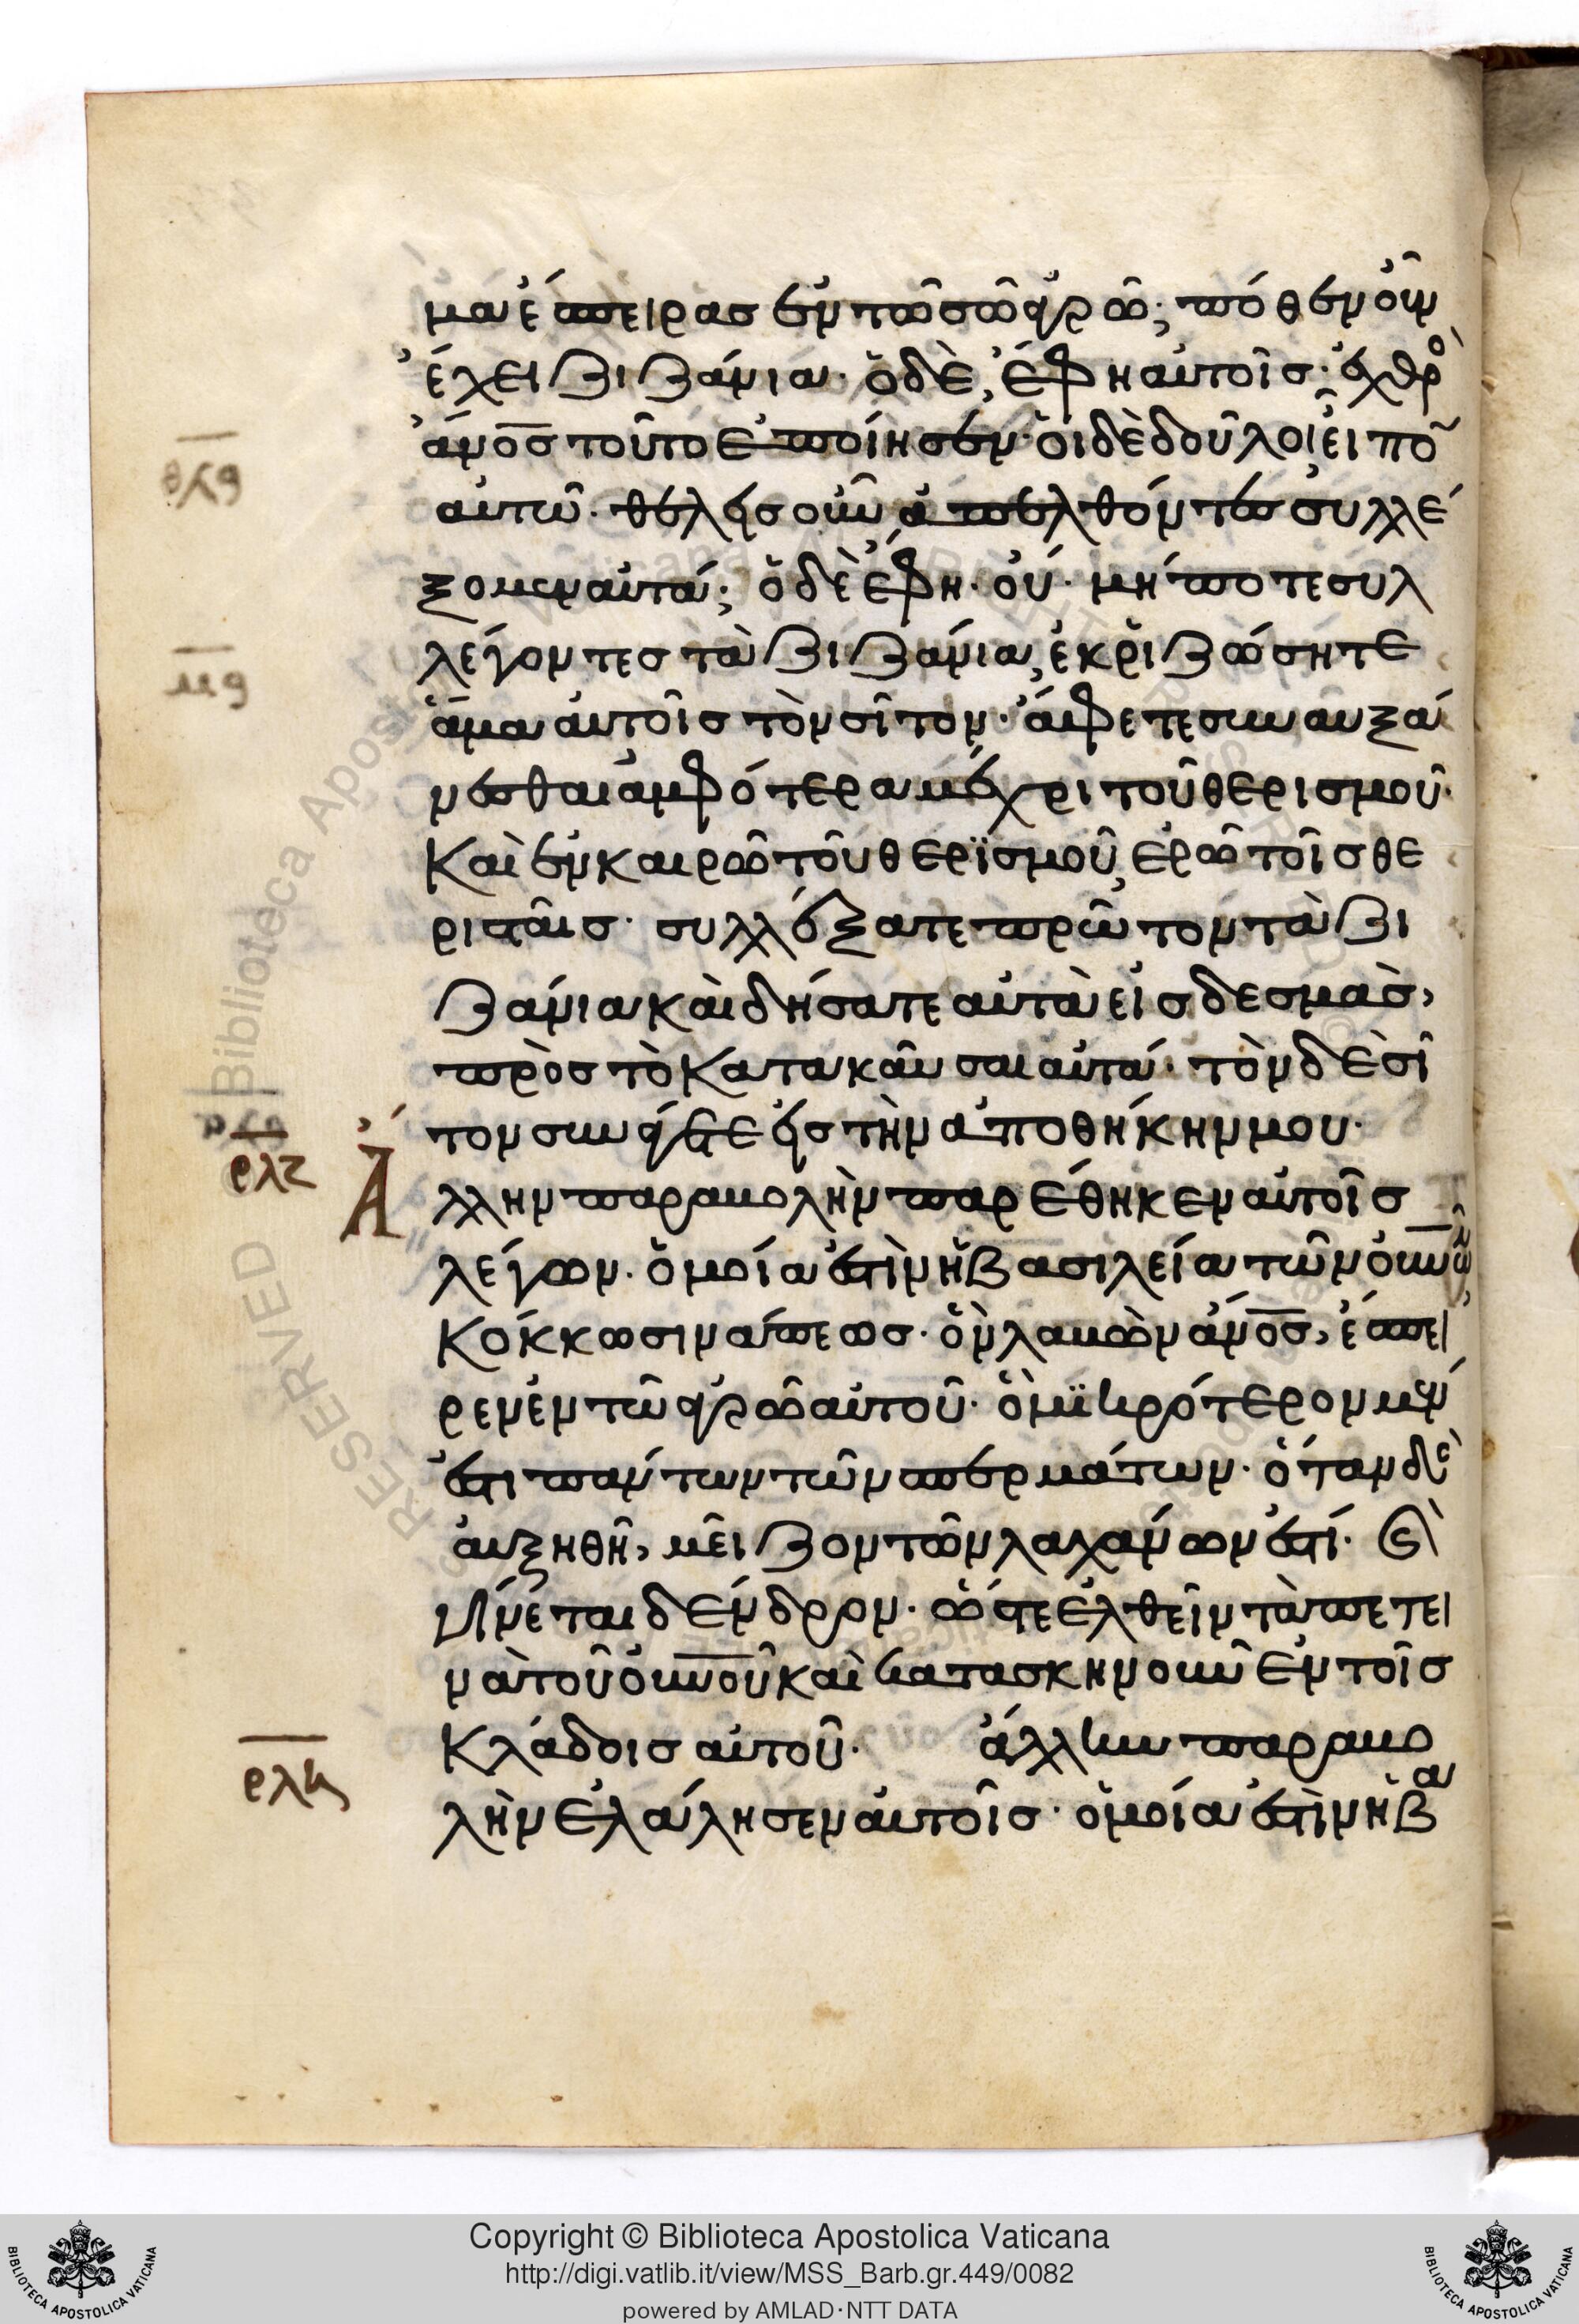 μα ἔσπειρας ἐν τῶ σῶ ἀγρῶ; πόθεν οὖν
ἔχει ζιζάνια· ὁ δὲ, ἔφη αὐτοῖς· ἐχθρὸ
ἄνος τοῦτο ἐποίησεν· οἱ δὲ δοῦλοι, εἶπο
αὐτῶ· θέλεις οὖν ἀπελθόντες συλλέ
ξομεν αὐτά; ὁ δὲ ἔφη· οὔ· μήποτε συλ
λέγοντες τὰ ζιζάνια, ἐκριζώσητε
ἅμα αὐτοῖς τὸν σῖτον· ἄφετε συναυξά
νεσθαι ἀμφότερα μέχρι τοῦ θερισμοῦ·
καὶ ἐν καιρῶ τοῦ θερϊσμοῦ, ἐρῶ τοῖς θε
ρισταῖς· συλλέξατε πρῶτον τὰ ζι
ζάνια καὶ δήσατε αὐτὰ εἰς δεσμὰς,
πρὸς τὸ κατακαῦσαι αὐτά· τὸν δὲ σῖ
ρλζ
τον συνάγετε εἰς τὴν ἀποθήκην μου·
Ἄλλην παραβολὴν παρέθηκεν αὐτοῖς
λέγων· ὁμοία ἐστὶν ἡ βασιλεία τῶν οὐνῶ
κόκκω σινάπεως· ὃν λαβὼν ἄνος, ἔσπει
ρεν ἐν τῶ ἀγρῶ αὐτοῦ· ὃ μϊκρότερον μέν
ἐστι πάντων τῶν σπερμάτων· ὅταν δὲ
αὐξηθῆ, μεῖζον τῶν λαχάνων ἐστί· καὶ
γίνεται δένδρον· ὥστε ἐλθεῖν τὰ πετει
νὰ τοῦ οὐνοῦ καὶ κατασκηνοῦν ἐν τοῖς
ρλη
κλάδοις αὐτοῦ· ἄλλην παραβο
λὴν ἐλάλησεν αὐτοῖς· ὁμοία ἐστὶν ἡ βα
Copyright © Biblioteca Apostolica Vaticana
http://digi.vatlib.it/view/MSS_Barb.gr.449/0082
powered by AMLAD·NTT DATA
BIBLIOTECA APOSTOLICA VATICANA
BIBLIOTECA APOSTOLICA VATICANA